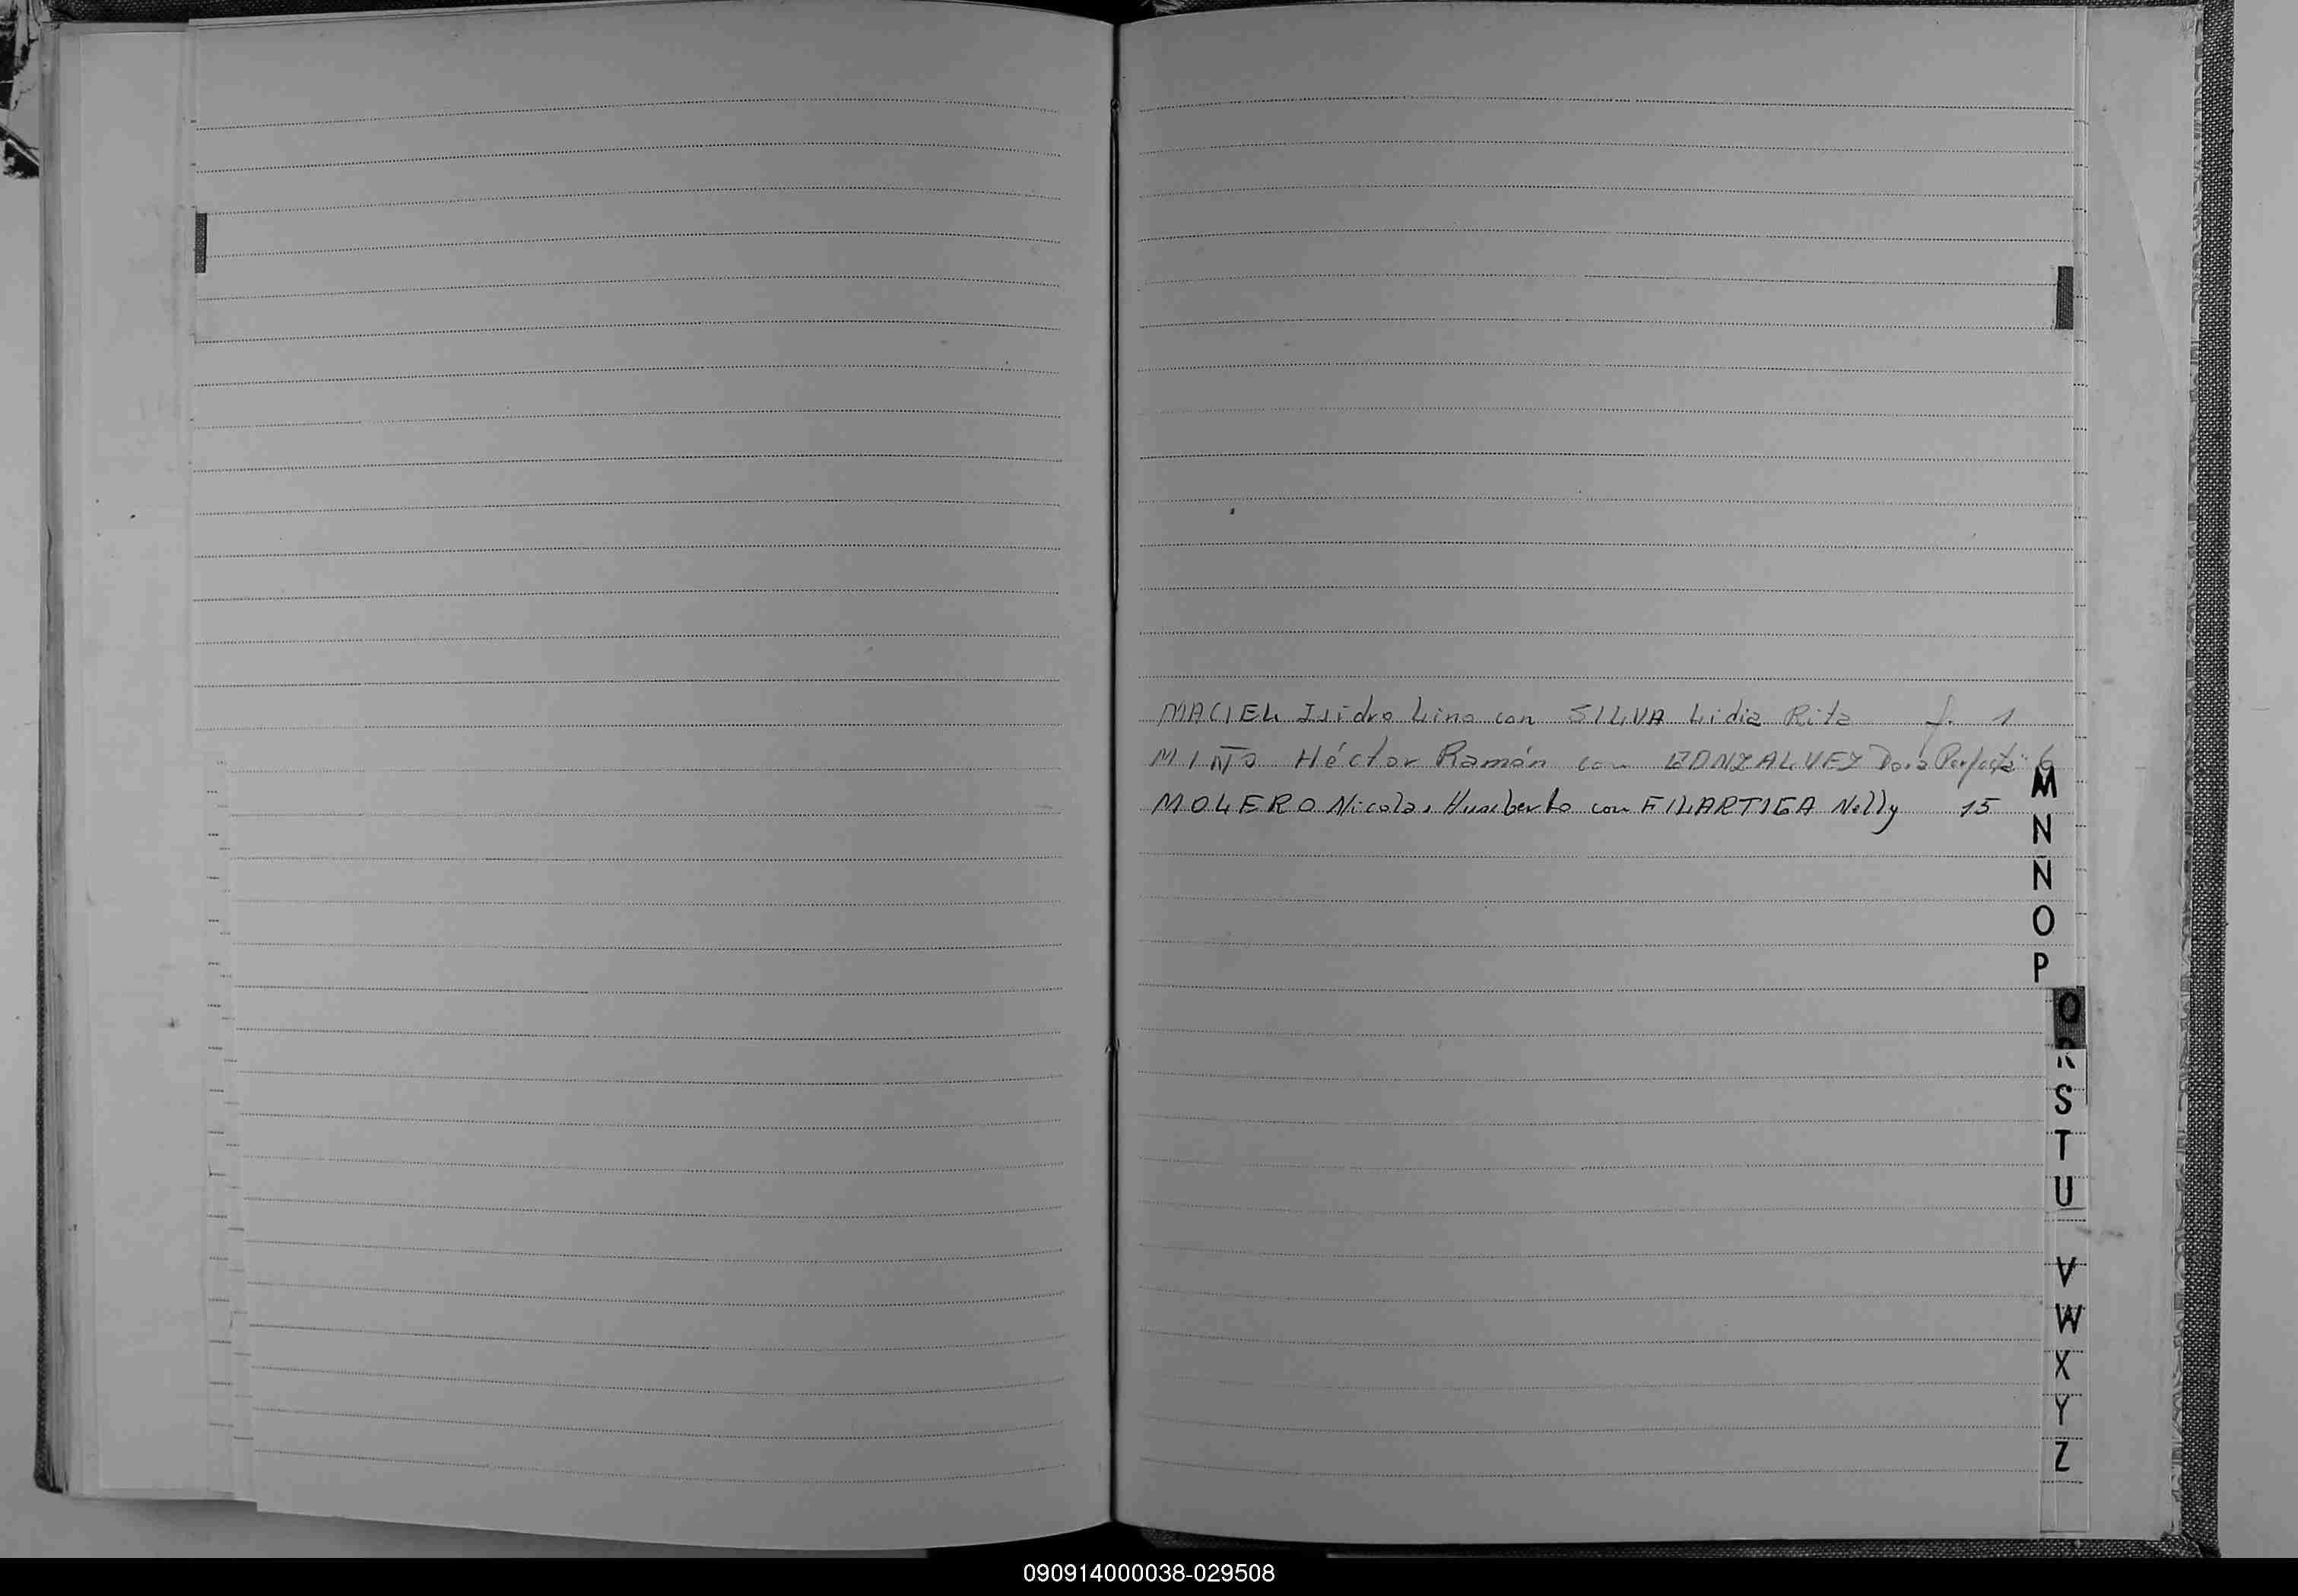 MACIEL Isidro Lino con SILVA Lidia Rita f. 1
MIÑO Héctor Ramón con GONZALVEZ Dora Perfecta 6
MOLERO Nicolas Humberto con FILARTIGA Nelly 15
M
N
Ñ
O
P
Q
R
S
T
U
V
W
X
Y
Z
090914000038-029508